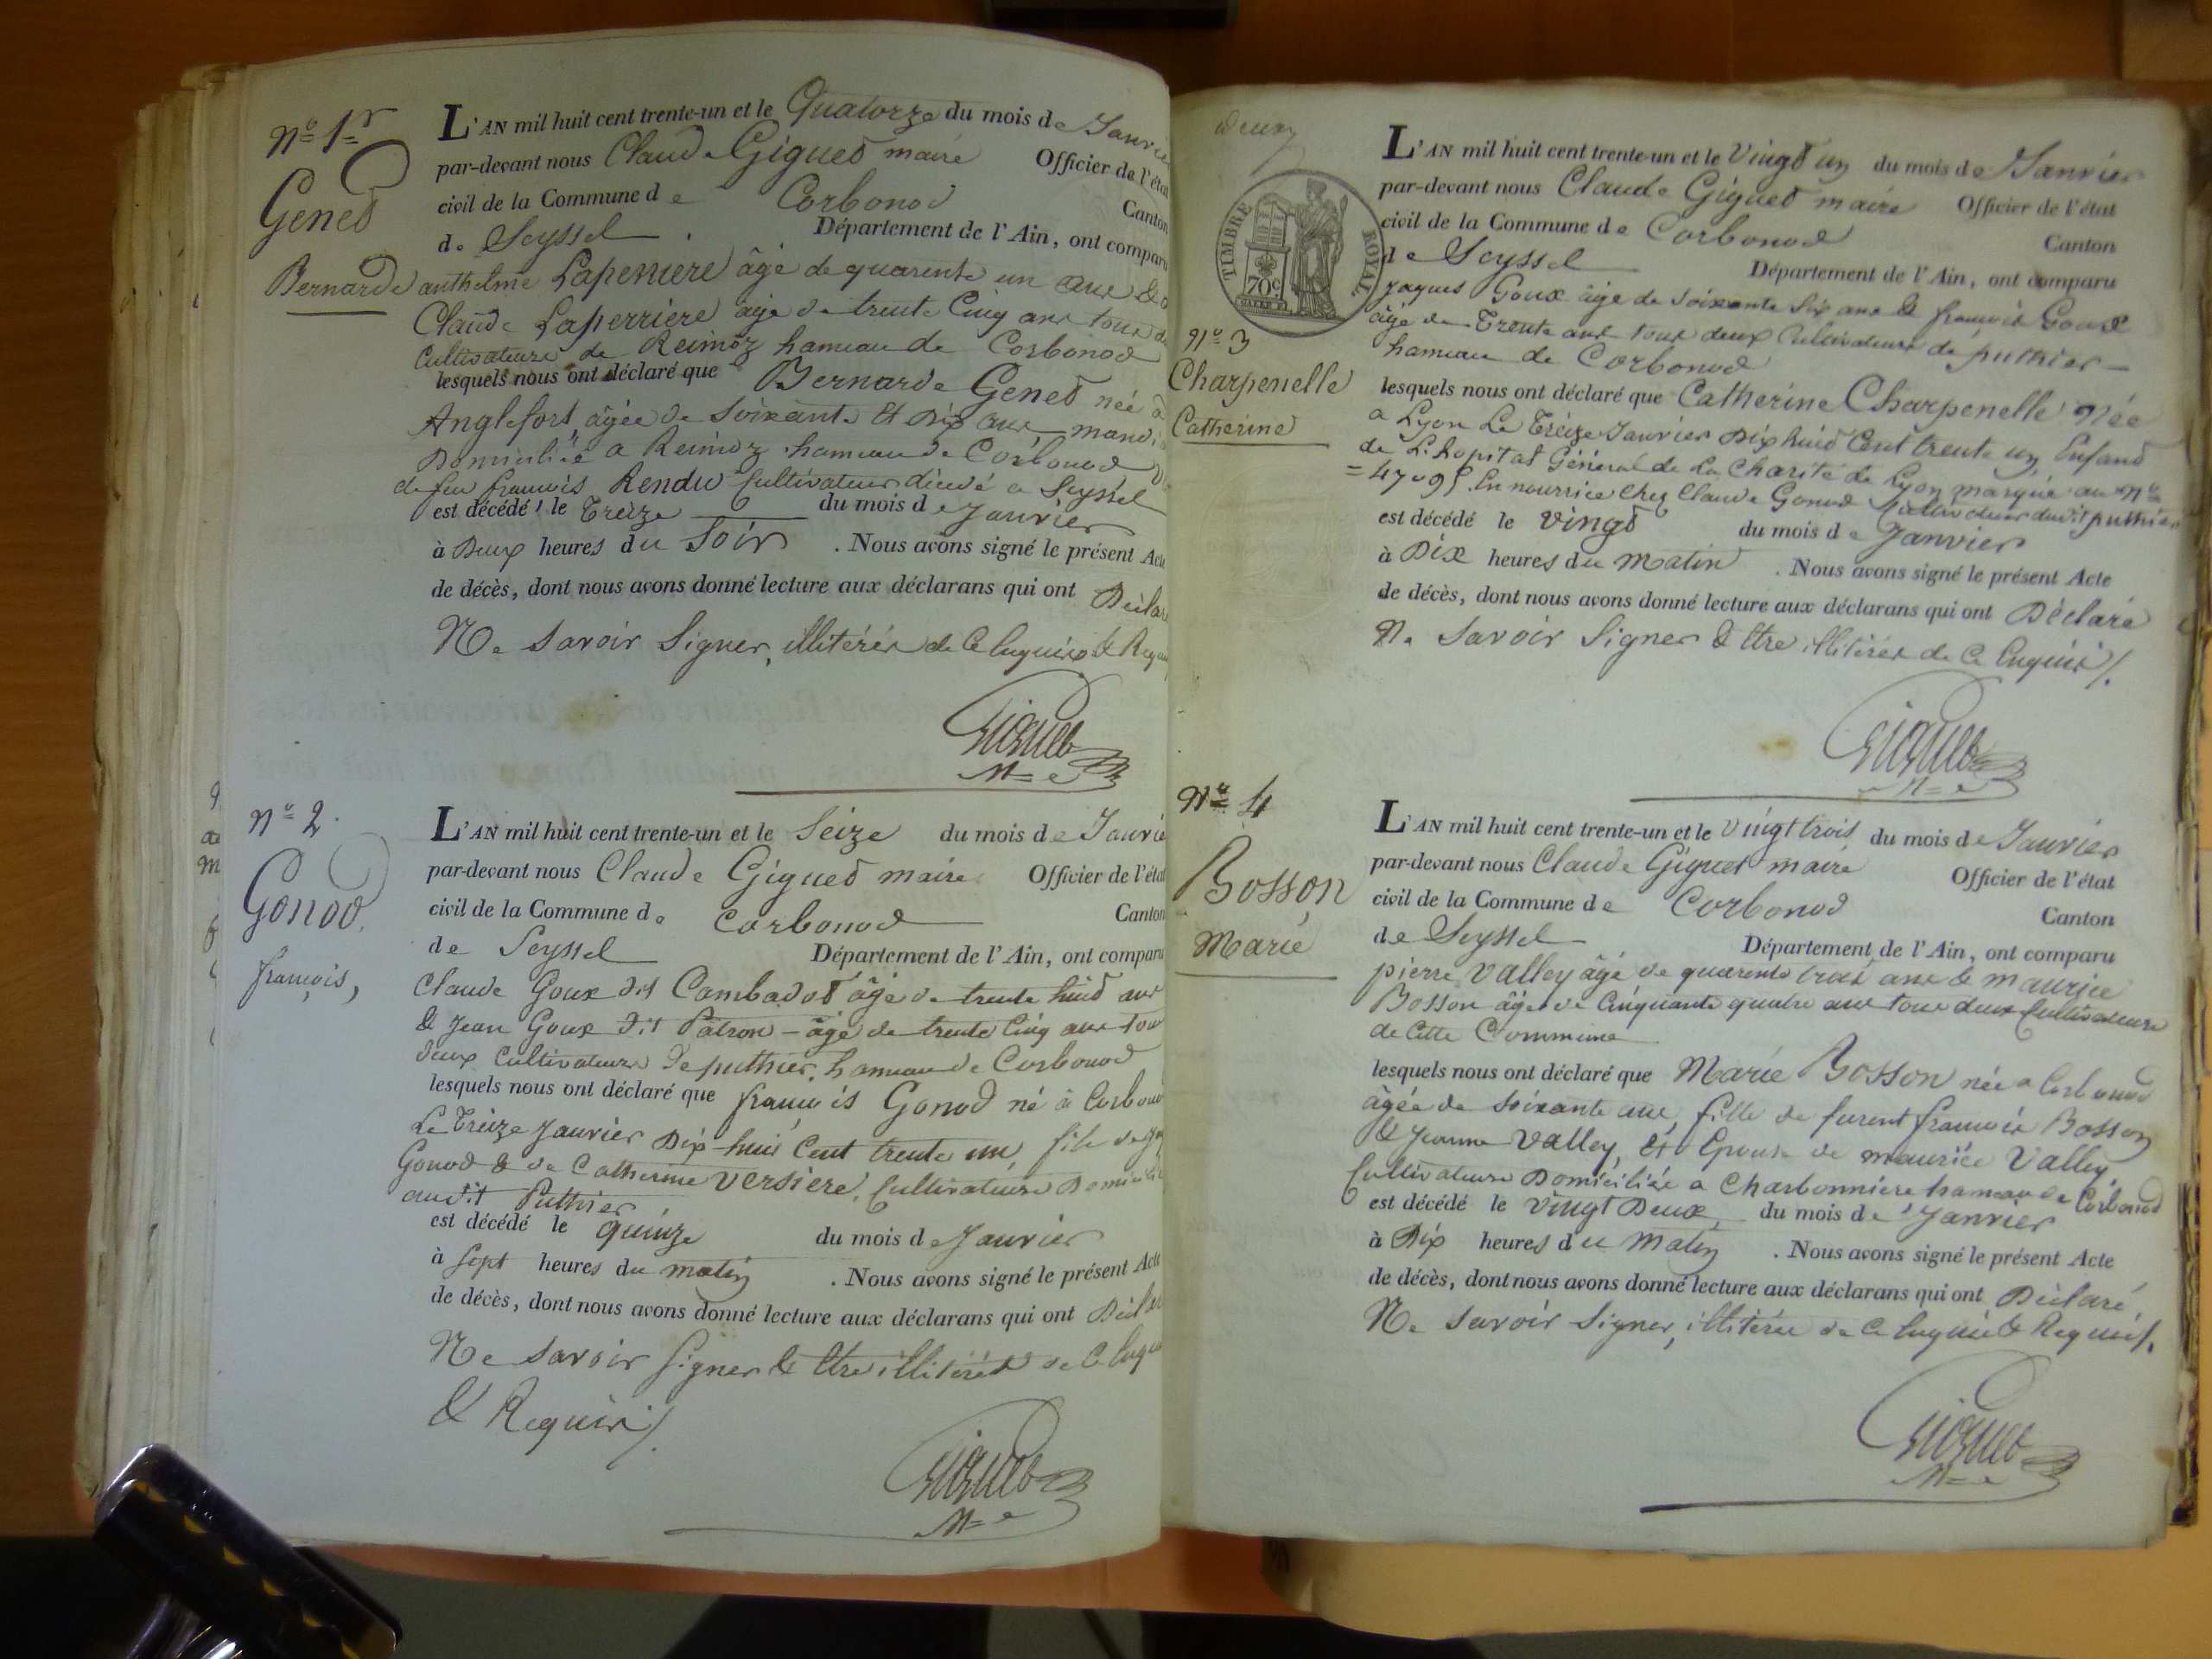 Nº 1er
Genet
Bernarde
L'AN mil huit cent trente-un et le Quatorze du mois de Janvie
par-devant nous Claude Giguet maire Officier de l'état
civil de la Commune de Corbonod Canton
de Seyssel Département de l'Ain, ont comparu
anthelme Laperriere âgé de quarente un ans &
Claude Laperriere âgé de trente Cinq ans tous d
Cultivateurs de Reimoz hameau de Corbonod
lesquels nous ont déclaré que Bernarde Genet née à
Anglefort, âgée de Soixante Et Dix ans
Domiciliée a Reimoz hameau de Corbonod
de feu francois Rendu Cultivateur décédé a Seyssel
est décédé le Treize du mois de Janvier
à Deux heures du Soir . Nous avons signé le présent Acte
de décès, dont nous avons donné lecture aux déclarans qui ont Déclar
Ne Savoir Signer, illitérés de Ce Enquéris & Req
Giguet
Mre
Nº 2
Gonod
françois,
L'AN mil huit cent trente-un et le Seize du mois de Janvie
par-devant nous Claude Giguet maire Officier de l'état
civil de la Commune de Corbonod Canton
de Seyssel Département de l'Ain, ont comparu
Claude Goux dit Cambadot âgé de trente huit ans
& Jean Goux Dit Patron - âgé de trente Cinq ans tous
deux Cultivateurs de puthier, hameau de Corbonod
lesquels nous ont déclaré que francois Gonod né à Corbono
Le Treize Janvier Dix-huit Cent trente un, fils de
Gonod & de Catherine Versiere, Cultivateurs Domicilié
audit Puthier
est décédé le quinze du mois de Janvier
à Sept heures du matin . Nous avons signé le présent Acte
de décès, dont nous avons donné lecture aux déclarans qui ont Décl
Ne Savoir Signer & Etre illitérés de Ce Enqu
& Requis /.
Giguet
Mre
deux
TIMBRE ROYAL
70 c
Nº 3
Charpenelle
Catherine
L'AN mil huit cent trente-un et le Vingt un du mois de Janvier
par-devant nous Claude Giguet maire Officier de l'état
civil de la Commune de Corbonod Canton
de Seyssel Département de l'Ain, ont comparu
Jaques Goux âgé de Soixante Six ans & francois Goux
âgé de Trente ans tous deux Cultivateurs de puthier
hameau de Corbonod
lesquels nous ont déclaré que Catherine Charpenelle Née
a Lyon Le Treize Janvier Dix huit Cent trente un, Enfant
de L'hopital Général de La Charité de Lyon marqué au Nº
= 4709 En nourrice Chez Claude Gonod Cultivateur dudit puthier
est décédé le vingt du mois de Janvier
à Dix heures du Matin . Nous avons signé le présent Acte
de décès, dont nous avons donné lecture aux déclarans qui ont Déclaré
Ne Savoir Signer & Etre illitérés de Ce Enquis /.
Giguet
Mre
Nº 4
Bosson
Marie
L'AN mil huit cent trente-un et le vingt trois du mois de Janvier
par-devant nous Claude Giguet maire Officier de l'état
civil de la Commune de Corbonod Canton
de Seyssel Département de l'Ain, ont comparu
pierre Valley âgé de quarente trois ans & maurice
Bosson âgé de Cinquante quatre ans tous deux Cultivateurs
de Cette Commune
lesquels nous ont déclaré que Marie Bosson née a Corbonod
âgée de Soixante ans, fille de furent francois Bosson
& Jeanne Valley, Et Epouse de maurice Valley
Cultivateurs Domiciliée a Charbonniere hameau de Corbonod
est décédé le vingt Deux du mois de Janvier
à Dix heures du Matin . Nous avons signé le présent Acte
de décès, dont nous avons donné lecture aux déclarans qui ont Déclaré,
Ne Savoir Signer, illitérés de Ce Enquis & Requis /.
Giguet
Mre